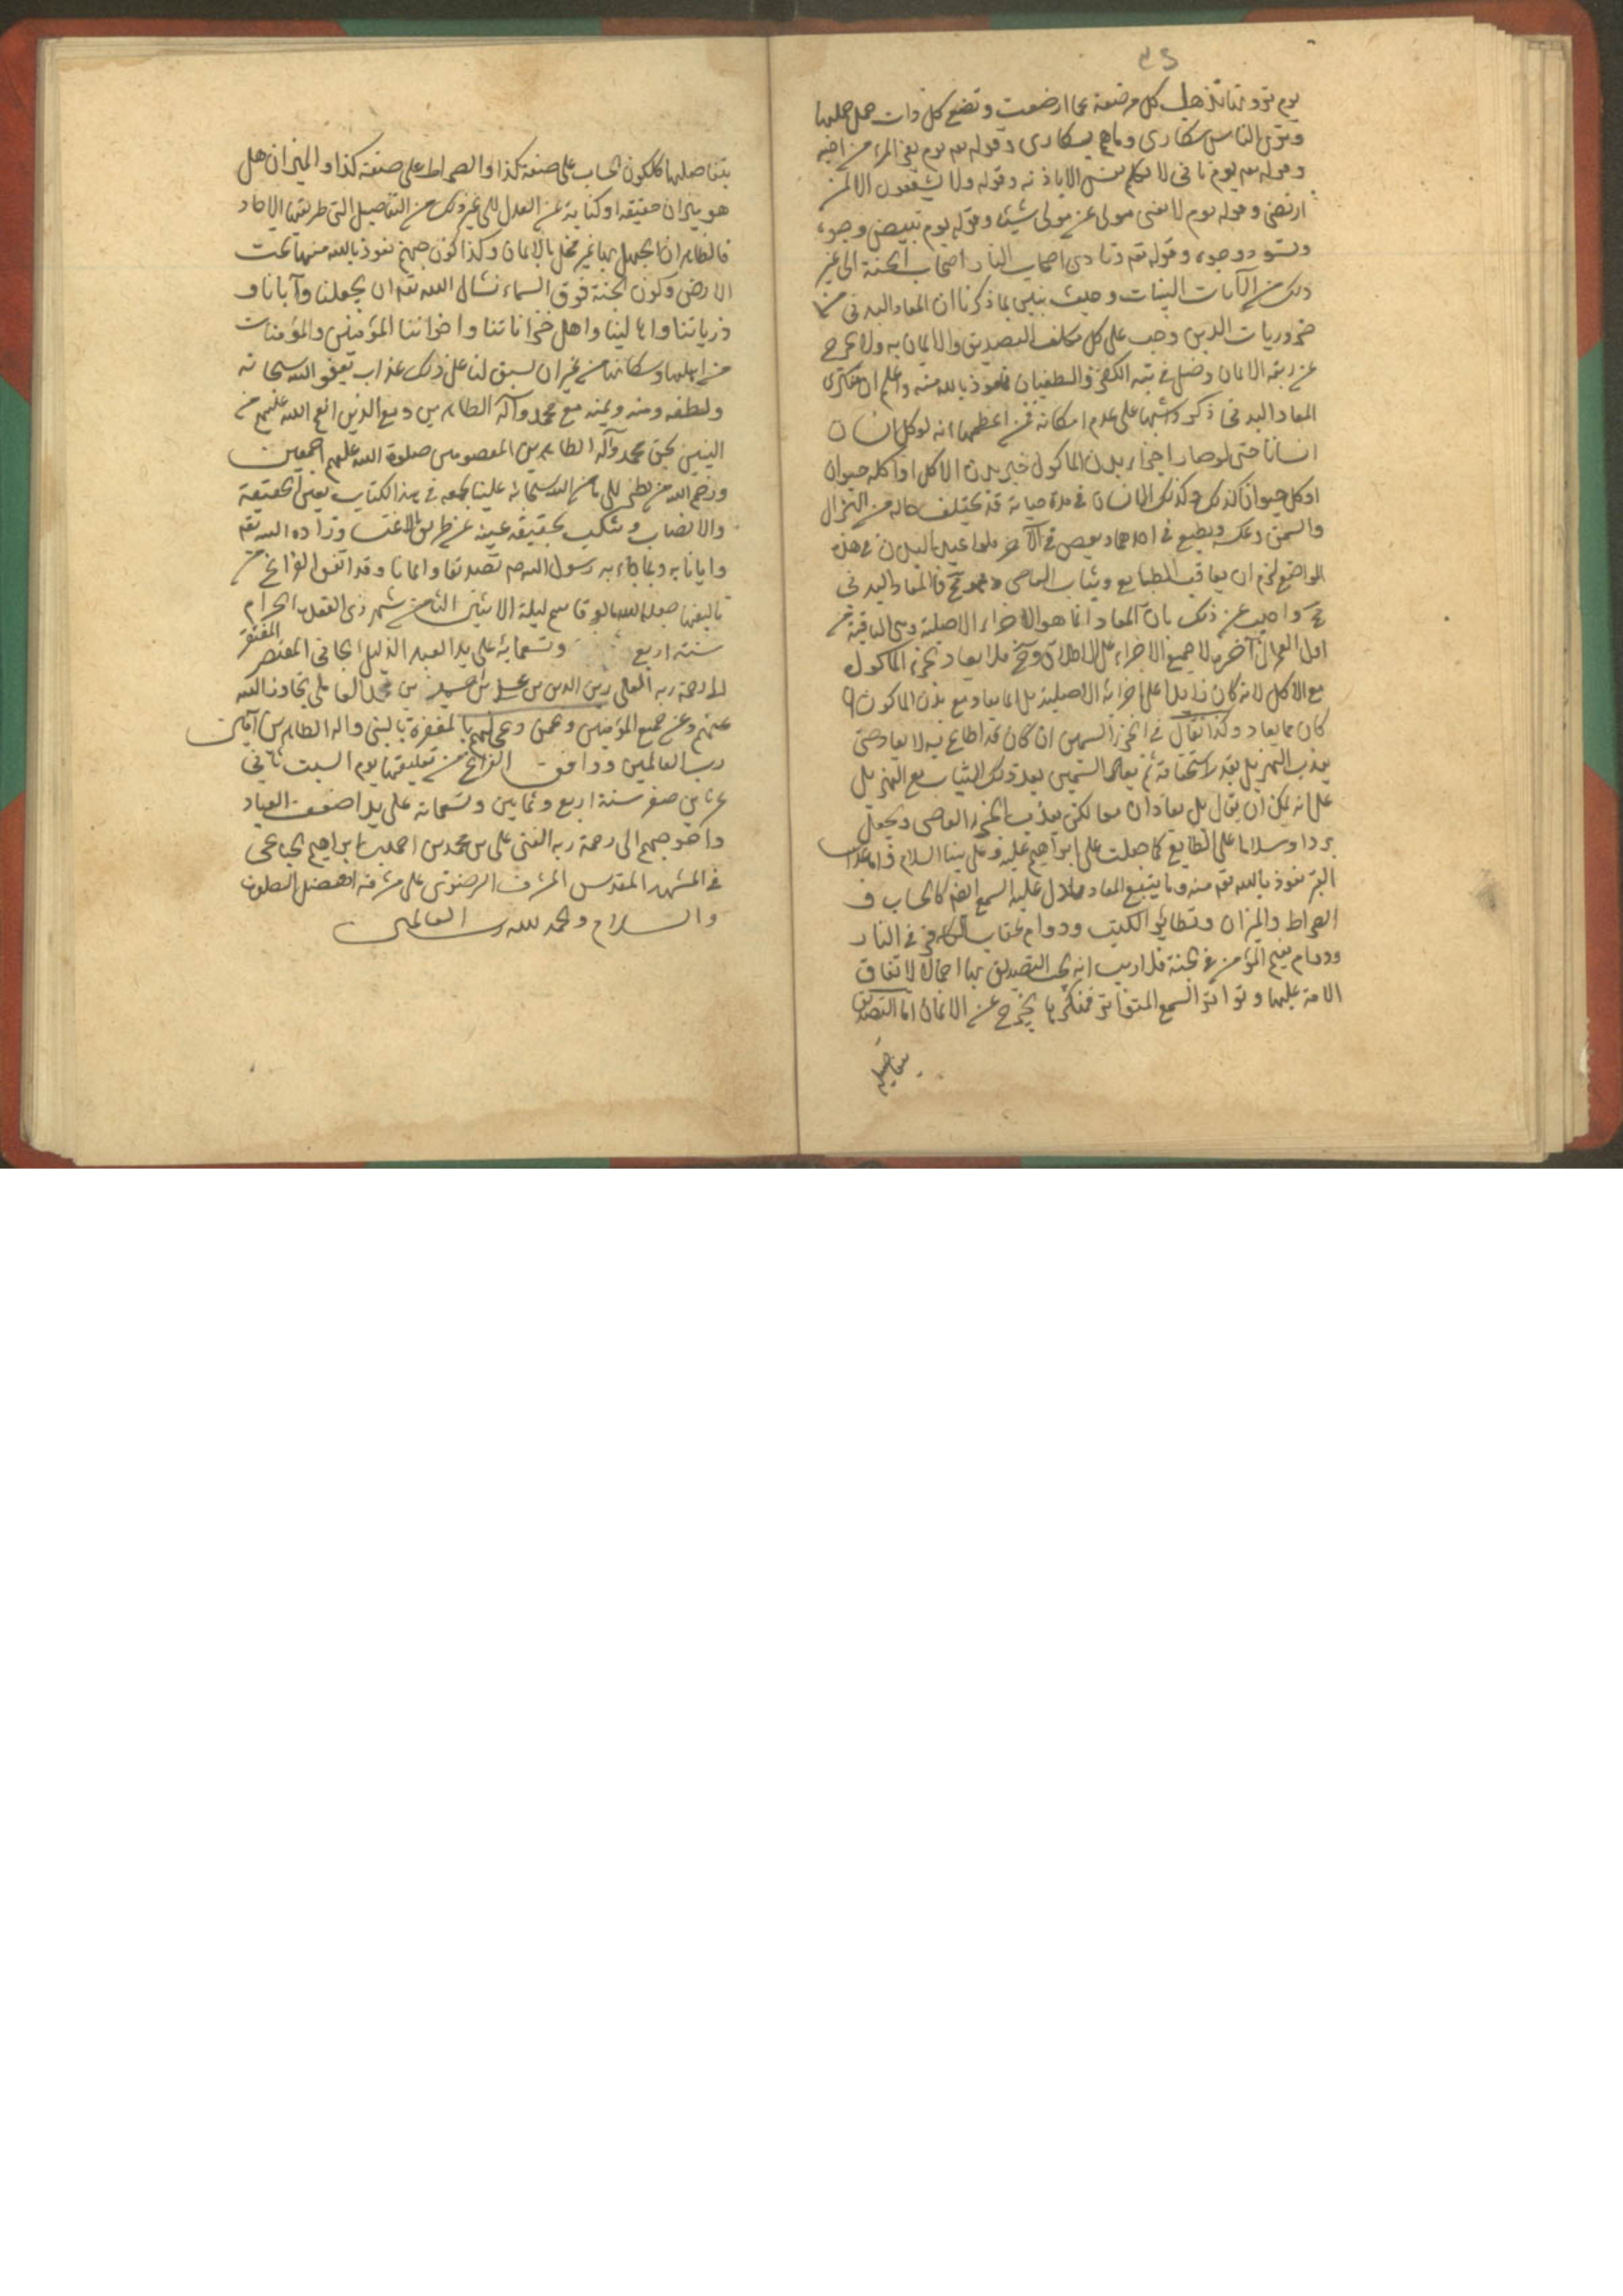 يوم ترونها تذهل كل مرضعة عما ارضعت وتضع كل ذات حمل حملها
وترى الناس سكارى وما هم بسكارى وقوله تعه يوم يفر المرء من اخيه
وقوله تعه يوم ياتى لا تكلم نفس الا باذنه وقوله ولا يشفعون الا لمن
ارتضى وقوله يوم لا يغنى مولى عن مولى شيئا وقوله يوم تبيض وجوه
وتسود وجوه وقوله تعه ونادى اصحاب النار اصحاب الجنة الى غير
ذلك من الآيات البينات وحيث تبين بما ذكرنا ان المعاد البدنى من
ضروريات الدين وجب على كل مكلف التصديق والايمان به والا خرج
عن ربقة الايمان وضل فى تيه الكفر والطغيان نعوذ بالله منه واعلم ان منكرى
المعاد البدنى ذكروا شبها على عدم امكانه فمن اعظمها انه لو اكل انسان
انسانا حتى لو صار اجزاء بدن الماكول جزء بدن الاكل او اكله حيوان
او اكل حيوان كذلك وكذلك الانسان فى مدة حياته قد يختلف حاله من الهزال
والسمن وعكسه ويطيع فى احدهما ويعصى فى الآخر فلو اعيد البدن فى هذه
المواضع لزم ان يعاقب الطايع ويثاب العاصى وهو مح فالمعاد البدنى
مح واجيب عن ذلك بان المعاد انما هو الاجزاء الاصلية وهى الباقية من
اول العمر الى آخره لا جميع الاجزاء على الاطلاق وح فلا يعاد الجزء الماكول
مع الاكل لانه كان زايدا على اجزائه الاصلية بل انما يعاد مع بدن الماكول ان
كان مما يعاد وكذا يقال فى الجزء السمين ان كان قد اطاع فيه لا يعاد حتى
يعذب الهزيل بقدر استحقاقه ثم يعاد السمين بعد ذلك ليثاب مع الهزيل
على انه يمكن ان يقال بل يعادان معا لكن يعذب الجزء العاصى ويجعل
بردا وسلاما على الطايع كما جعلت على ابراهيم عليه وعلى نبينا السلام واما عذاب
القبر نعوذ بالله تعه منه وما يتبع المعاد مما دل عليه السمع ايضا كالحساب و
الصراط والميزان وتطاير الكتب ودوام عقاب الكافر فى النار
ودوام نعيم المؤمن فى الجنة فلا ريب انه يجب التصديق بها اجمالا لاتفاق
الامة عليها وتواتر السمع المتواتر فمنكرها يخرج عن الايمان اما التصديق
بتفاصيلها
بتفاصيلها ككون الحساب على صفة كذا والصراط على صفة كذا والميزان هل
هو ميزان حقيقة او كناية عن العدل الى غير ذلك من التفاصيل التى طريقها الاحاد
فالظاهر ان الجهل بها غير مخل بالايمان وكذا كون جهنم نعوذ بالله منها تحت
الارض وكون الجنة فوق السماء نسال الله تعه ان يجعلنا وآبائنا و
ذرياتنا واهالينا واهل خزاناتنا واخواننا المؤمنين والمؤمنات
من اهلها وسكانها من غير ان يسبق لنا على ذلك عذاب بعفو الله سبحانه
ولطفه ومنه ويمنه مع محمد وآله الطاهرين ومع الذين انعم الله عليهم من
النبيين بحق محمد وآله الطاهرين المعصومين صلوة الله عليهم اجمعين
ورحم الله من نظر الى ما من الله سبحانه علينا بجمعه فى هذا الكتاب بعين الحقيقة
والانصاف ونكب بحقيقة عينه عن طريق الاعتساف وزاده الله تعه
وايانا به وبما جاء به رسول الله صم تصديقا وايمانا وقد اتفق الفراغ من
تاليفها ليلة الاثنين الثامن شهر ذى القعدة الحرام
سنة اربع وتسعمائة على يد العبد الذليل الجانى المقتصر المفتقر
الى رحمة ربه العلى زين الدين بن على بن العاملى تجاوز الله
عنهم وعن جميع المؤمنين وعمن دعى لهم بالمغفرة بالنبى واله الطاهرين آمين
رب العالمين ووافق الفراغ من تعليقها يوم السبت ثانى
عشرين صفر سنة اربع وثمانين وتسعمائة على يد اضعف العباد
واحوجهم الى رحمة ربه الغنى على بن محمد بن احمد بن ابراهيم
فى المشهد المقدس المشرف الرضوى على مشرفه افضل الصلوة
والسلام والحمد لله رب العالمين